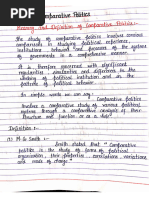 Comparative Politics
Meaning and Definition of Comparative Politics:-
The study of comparative politics involves conscious
comparisons in studying political experience,
institutions behaviour and processes of the systems
of government in a comprehensive manner.
It is therefore concerned with significant
regularities similarities and differences in the
working of political institution and in
political behaviour.
In simple words we can say:
Comparative politics involves a
comparative study of various political
systems through a comparative analysis of their
structure and function or a
Definition :-
M.G Smith :-
Smith stated that "Comparative
politics is the study of forms of political
organization, their properties, correlations, variations
of change.